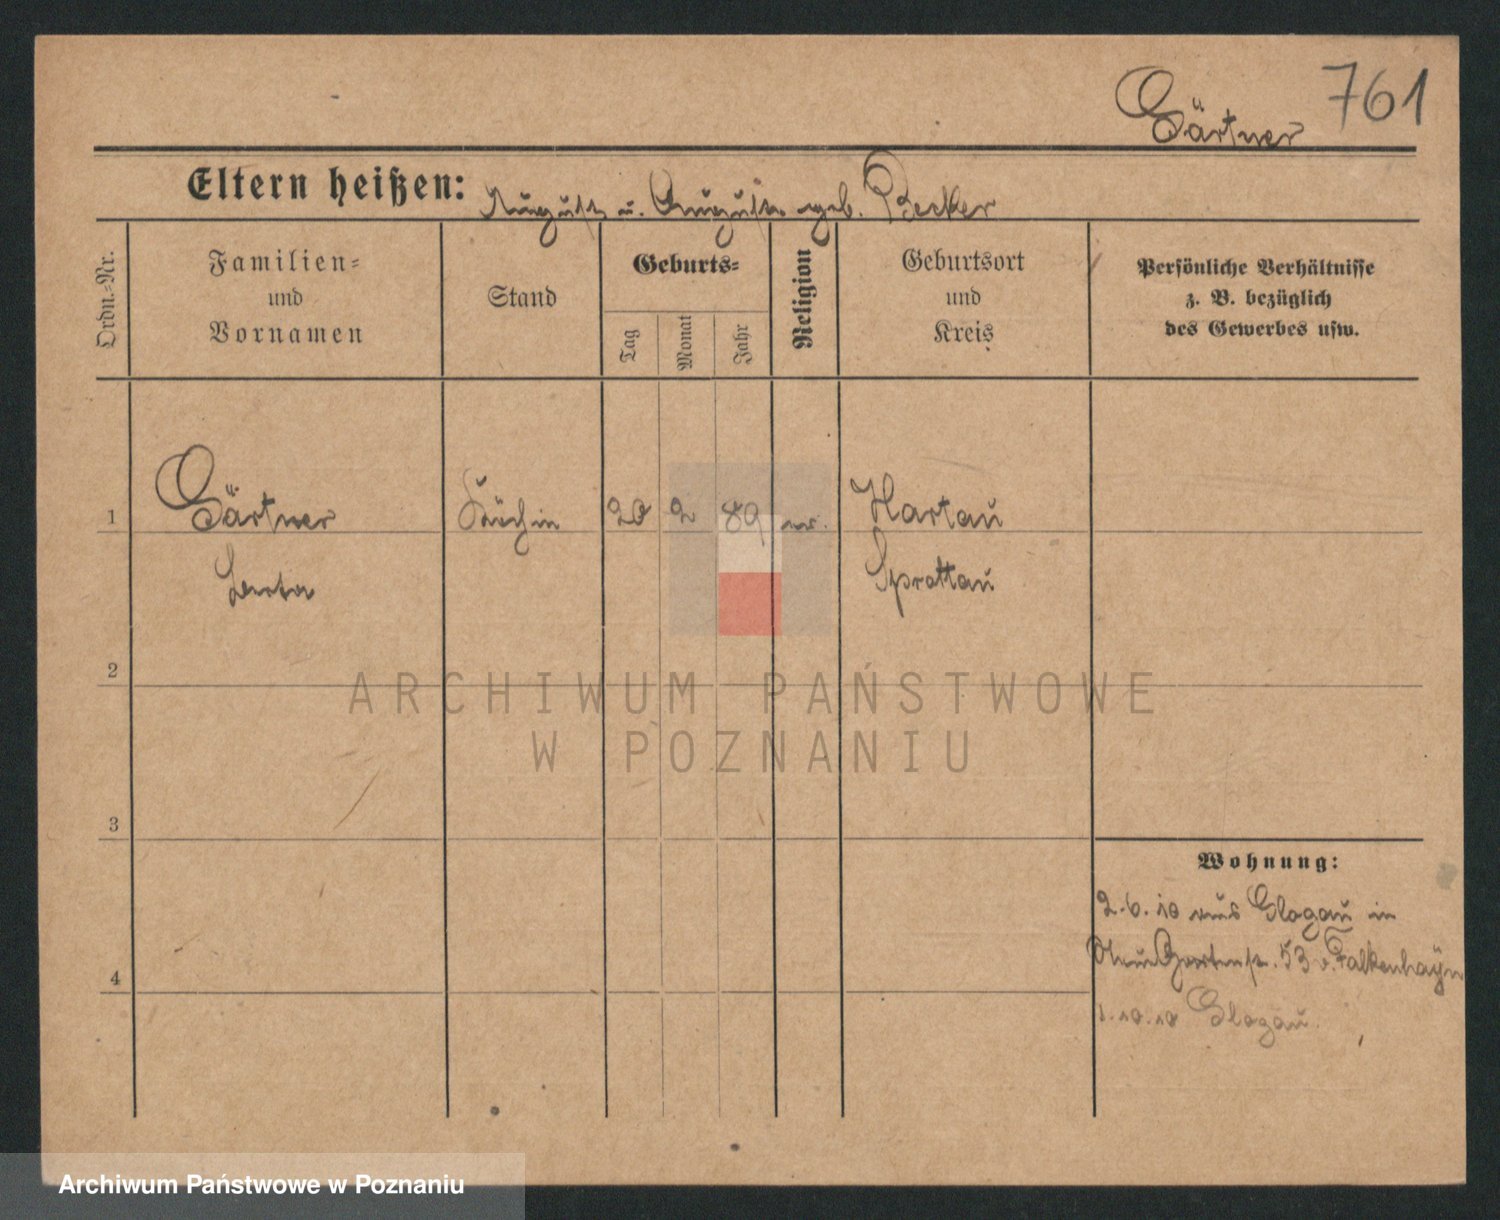 761
Gärtner
Eltern heißen: August u. Auguste geb. Becker
Ordn.-Nr.
Familien-
und
Vornamen
Stand
Geburts-
Tag
Monat
Jahr
Religion
Geburtsort
und
Kreis
Persönliche Verhältnisse
z. B. bezüglich
des Gewerbes usw.
1 Gärtner Köchin 20 2 89 ev. Hartau
Berta Sprottau
2
ARCHIWUM PAŃSTWOWE
W POZNANIU
3
Wohnung:
2.6.10 aus Glogau in
Neue Gartenstr. 53 v. Falkenhayn
4
1.10.10 Glogau.
Archiwum Państwowe w Poznaniu